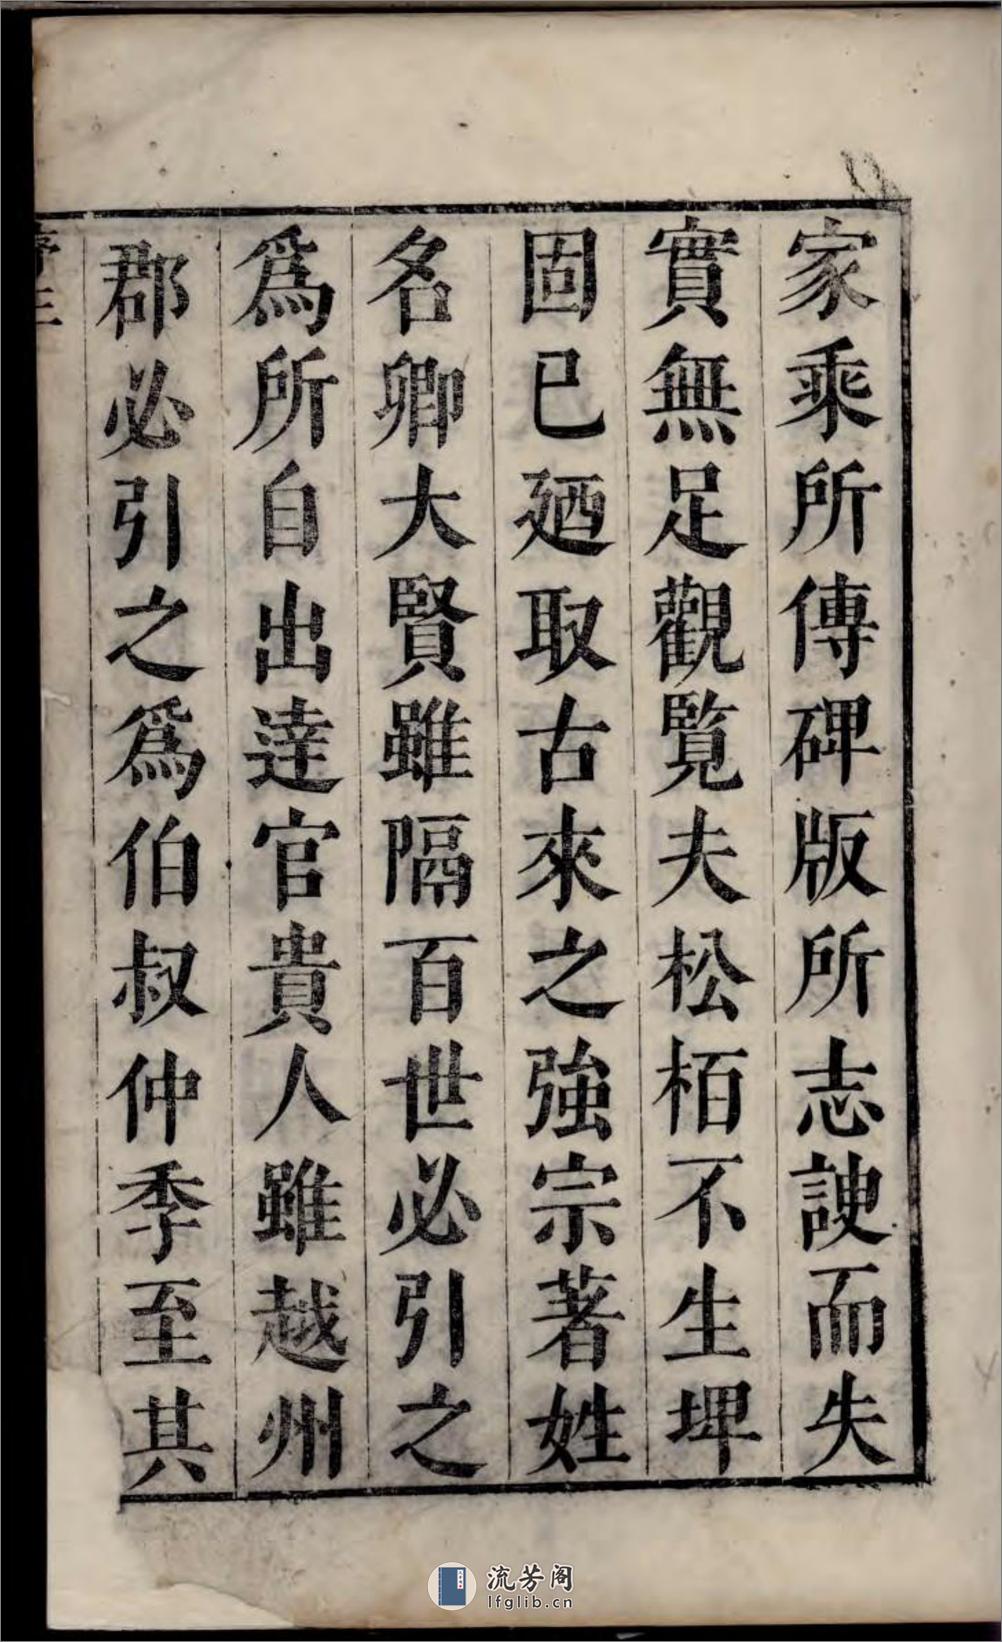 家乘所傳碑版所志諛而失
實無足觀覽夫松栢不生埤
固已廼取古來之強宗著姓
名卿大賢雖隔百世必引之
爲所自出逹官貴人雖越州
郡必引之爲伯叔仲季至其
序三
流芳阁
lfglib.cn